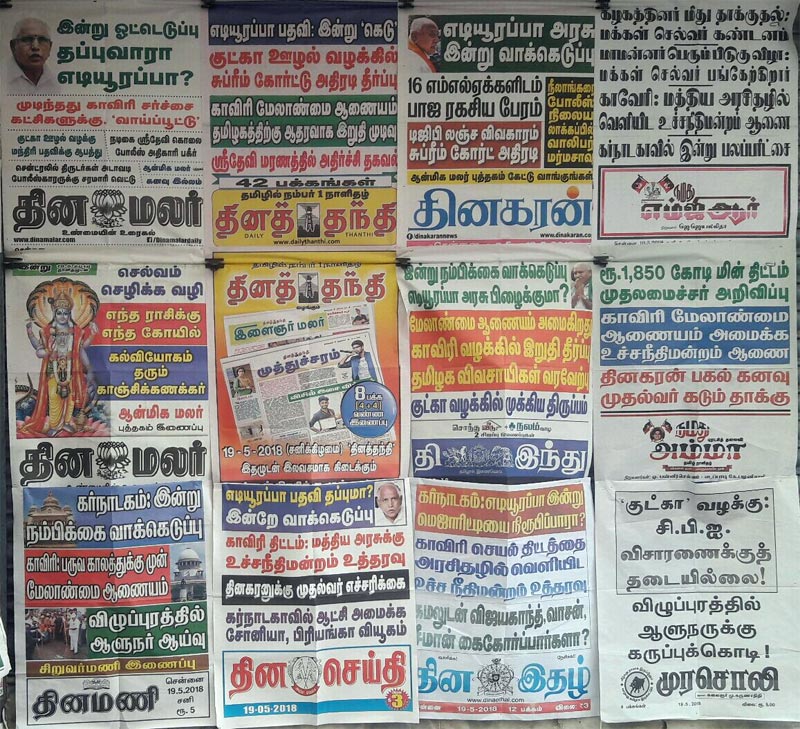 இன்று ஓட்டெடுப்பு
தப்புவாரா
எடியூரப்பா?
முடிந்தது காவிரி சர்ச்சை
கட்சிகளுக்கு, 'வாய்ப்பூட்டு'
குட்கா ஊழல் வழக்கு
மந்திரி பதவிக்கு ஆபத்து
நடிகை ஸ்ரீதேவி கொலை
போலீஸ் அதிகாரி பகீர்
சென்ட்ரலில் திருடர்கள் அடாவடி
போலீஸ்காரருக்கு சரமாரி வெட்டு
ஆன்மிக மலர்
கனவு இல்லம்
தின மலர்
உண்மையின் உரைகல்
www.dinamalar.com
/Dinamalardaily
எடியூரப்பா பதவி: இன்று 'கெடு'
குட்கா ஊழல் வழக்கில்
சுப்ரீம் கோர்ட்டு அதிரடி தீர்ப்பு
காவிரி மேலாண்மை ஆணையம்
தமிழகத்திற்கு ஆதரவாக இறுதி முடிவு
ஸ்ரீதேவி மரணத்தில் அதிர்ச்சி தகவல்
42 பக்கங்கள்
தமிழில் நம்பர் 1 நாளிதழ்
தினத் தந்தி
DAILY THANTHI
www.dailythanthi.com
எடியூரப்பா அரசு
இன்று வாக்கெடுப்பு
16 எம்எல்ஏக்களிடம்
பாஜ ரகசிய பேரம்
டிஜிபி லஞ்ச விவகாரம்
சுப்ரீம் கோர்ட் அதிரடி
நீலாங்கரை
போலீஸ்
நிலைய
லாக்கப்பில்
வாலிபர்
மர்மசாவு
ஆன்மிக மலர் புத்தகம் கேட்டு வாங்குங்கள்
தினகரன்
/dinakarannews
www.dinakaran.com
கழகத்தினர் மீது தாக்குதல்:
மக்கள் செல்வர் கண்டனம்
மாமன்னர் பெரும்பிடுகு விழா:
மக்கள் செல்வர் பங்கேற்கிறார்
காவேரி: மத்திய அரசிதழில்
வெளியிட உச்சநீதிமன்றம் ஆணை
கர்நாடகாவில் இன்று பலப்பரீட்சை
நமது
எம்ஜிஆர்
செல்வம்
செழிக்க வழி
எந்த ராசிக்கு
எந்த கோயில்
கல்வியோகம்
தரும்
காஞ்சிக்கணக்கர்
ஆன்மிக மலர்
புத்தகம் இணைப்பு
தின மலர்
தமிழில் நம்பர் 1 நாளிதழ்
தினத் தந்தி
வழங்கும்
இளைஞர் மலர்
முத்துச்சரம்
8 பக்க
(4+4)
வண்ண
இணைப்பு
19-5-2018 (சனிக்கிழமை) 'தினத்தந்தி'
இதழுடன் இலவசமாக கிடைக்கும்
இன்று நம்பிக்கை வாக்கெடுப்பு
எடியூரப்பா அரசு பிழைக்குமா?
மேலாண்மை ஆணையம் அமைகிறது
காவிரி வழக்கில் இறுதி தீர்ப்பு
தமிழக விவசாயிகள் வரவேற்பு
குட்கா வழக்கில் முக்கிய திருப்பம்
சொந்த வீடு
நலம் வாழ
தி இந்து
ரூ.1,850 கோடி மின் திட்டம்
முதலமைச்சர் அறிவிப்பு
காவிரி மேலாண்மை
ஆணையம் அமைக்க
உச்சநீதிமன்றம் ஆணை
தினகரன் பகல் கனவு
முதல்வர் கடும் தாக்கு
நமது
அம்மா
கர்நாடகம்: இன்று
நம்பிக்கை வாக்கெடுப்பு
காவிரி: பருவ காலத்துக்கு முன்
மேலாண்மை ஆணையம்
விழுப்புரத்தில்
ஆளுநர் ஆய்வு
சிறுவர்மணி இணைப்பு
தினமணி
சென்னை
19.5.2018
சனி
ரூ. 5
எடியூரப்பா பதவி தப்புமா?
இன்றே வாக்கெடுப்பு
காவிரி திட்டம்: மத்திய அரசுக்கு
உச்சநீதிமன்றம் உத்தரவு
தினகரனுக்கு முதல்வர் எச்சரிக்கை
கர்நாடகாவில் ஆட்சி அமைக்க
சோனியா, பிரியங்கா வியூகம்
தின செய்தி
19-05-2018
3
கர்நாடகம்:எடியூரப்பா இன்று
மெஜாரிட்டியை நிரூபிப்பாரா?
காவிரி செயல் திட்டத்தை
அரசிதழில் வெளியிட
உச்ச நீதிமன்றம் உத்தரவு
கமலுடன் விஜயகாந்த், வாசன்,
சீமான் கைகோர்ப்பார்களா?
தின இதழ்
www.dinaethal.com
சென்னை 19-5-2018 12 பக்கம் விலை: ₹3
'குட்கா' வழக்கு:
சி.பி.ஐ.
விசாரணைக்குத்
தடையில்லை!
விழுப்புரத்தில்
ஆளுநருக்கு
கருப்புக்கொடி!
முரசொலி